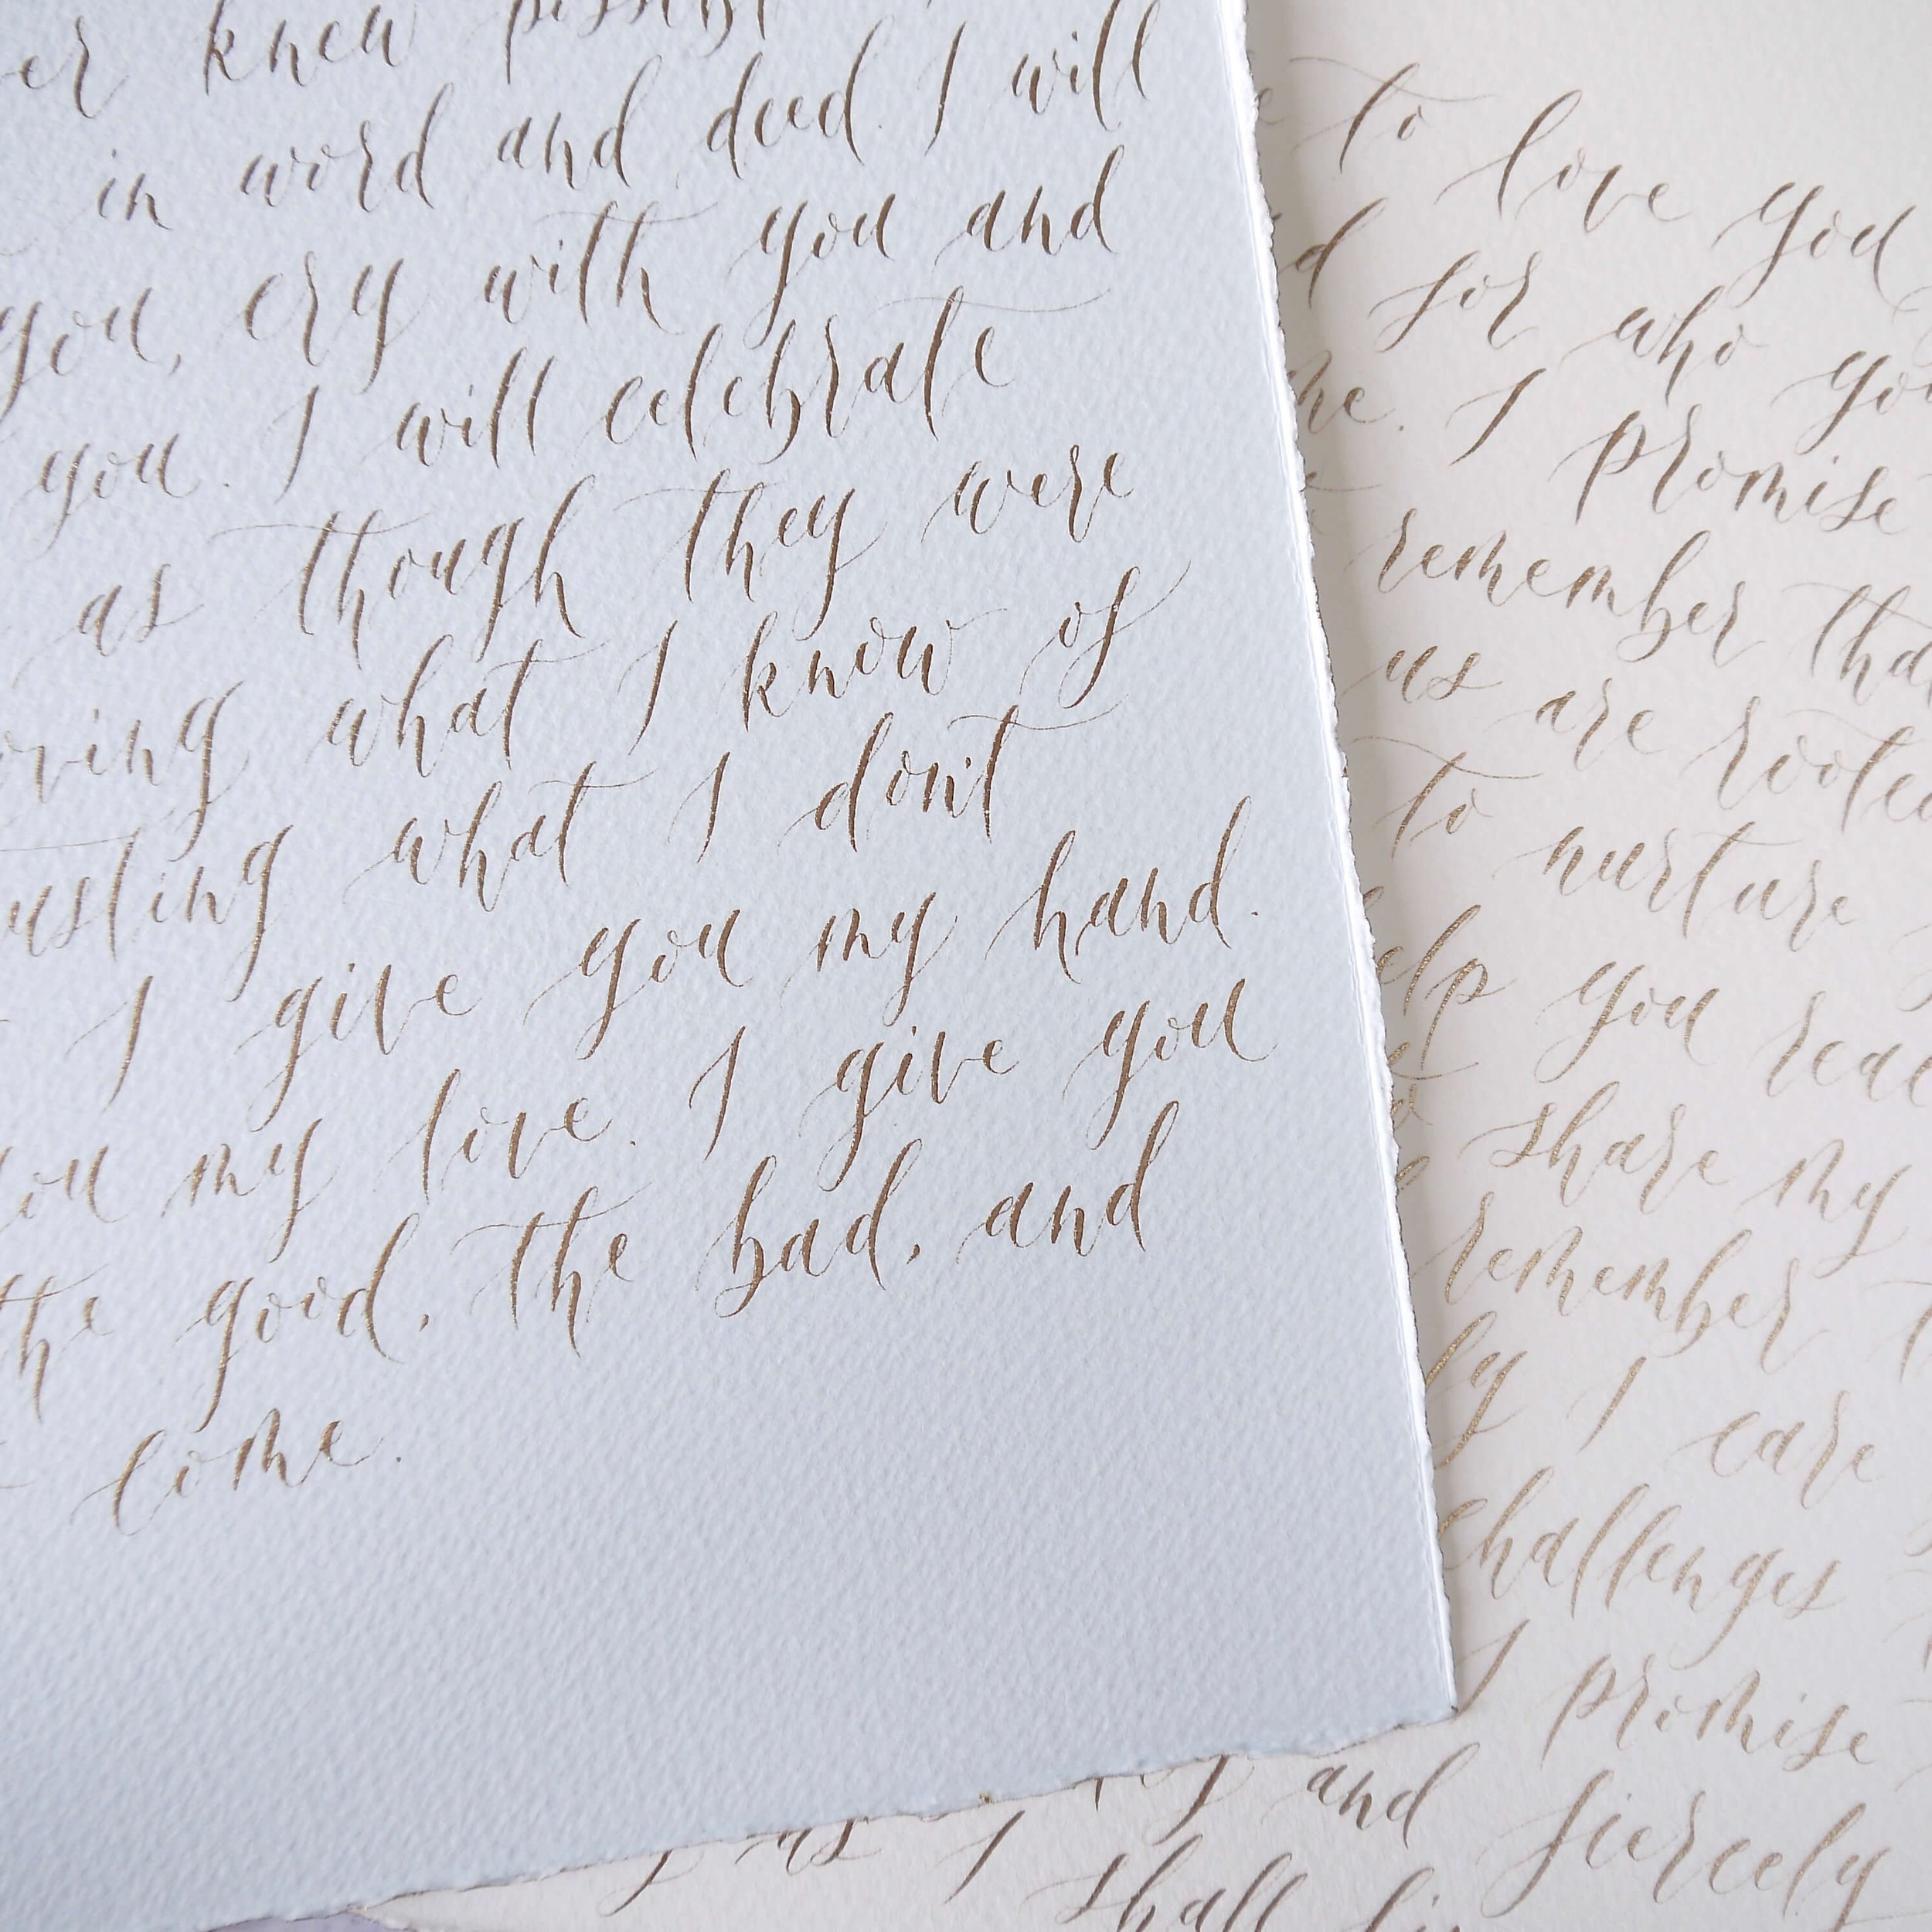 knew
in word and deed. I will
you, cry with you and
you. I will celebrate
as though they were
what I know of
what I don't
I give you my hand.
my love. I give you
the good, the bad, and
come.
to love you
for who
I promise
remember
us are
to nurture
you
share my
remember
I care
challenges
I promise
and fiercely
as I shall